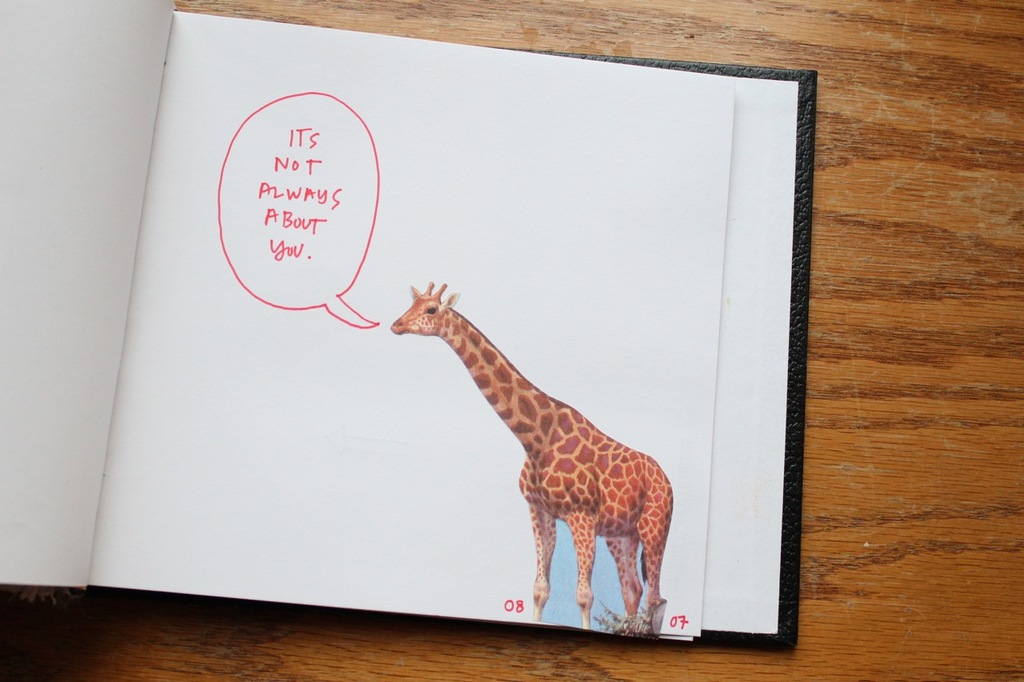 ITS
NOT
ALWAYS
ABOUT
YOU.
08
07